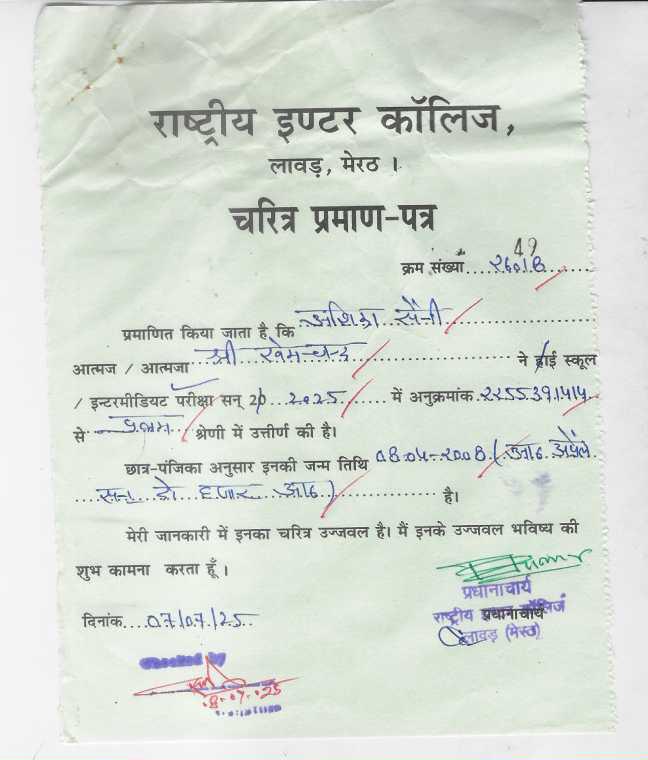 राष्ट्रीय इण्टर कॉलिज,
लावड़, मेरठ ।
चरित्र प्रमाण-पत्र
49
क्रम संख्या....2601B......
प्रमाणित किया जाता है, कि ..अंशिका..सैनी..
आत्मज / आत्मजा ..श्री..खेमचन्द.................. ने हाई स्कूल
/ इन्टरमीडियट परीक्षा सन् 20...2025....... में अनुक्रमांक.2255391414..
से ...प्रथम... श्रेणी में उत्तीर्ण की है।
छात्र-पंजिका अनुसार इनकी जन्म तिथि 08-04-2008 (आठ अप्रैल
....सन्..दो..हजार..आठ.)............... है।
मेरी जानकारी में इनका चरित्र उज्जवल है। मैं इनके उज्जवल भविष्य की
शुभ कामना करता हूँ ।
प्रधानाचार्य
दिनांक....07/07/25..
राष्ट्रीय प्रधानाचार्य कॉलिज
लावड़ (मेरठ)
Checked by
8-07-25